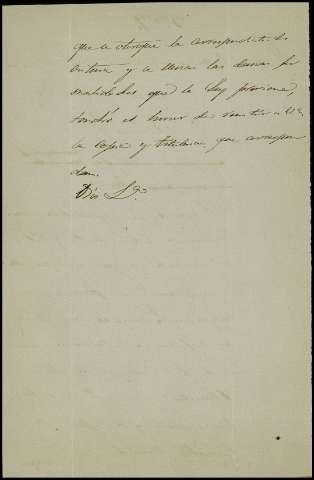 que se otorgue la correspondiente es
critura y se llenen las demas for
malidades que la Ley previene,
tendré el honor de remitir a V.E.
la copia y testimonio que correspon
dan.
Dios &.ª